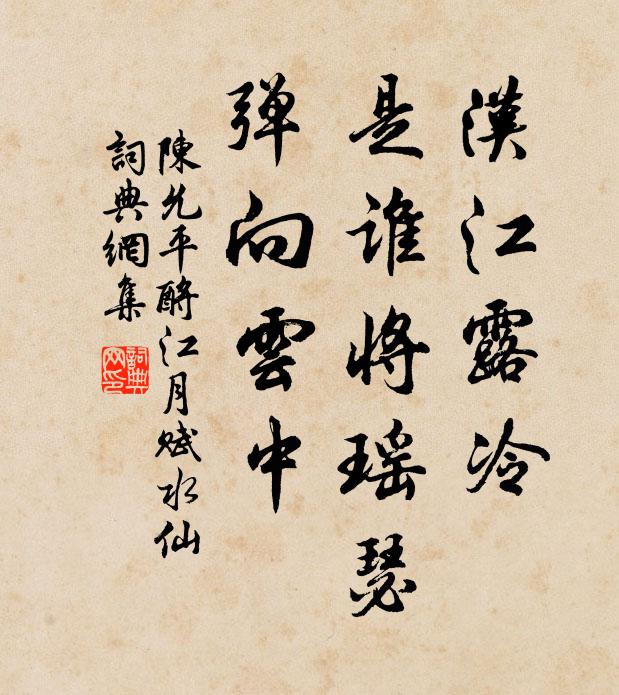 漢江露冷
是谁将瑶瑟
弹向雲中
陳允平酹江月赋水仙
詞典網集
詞典网印